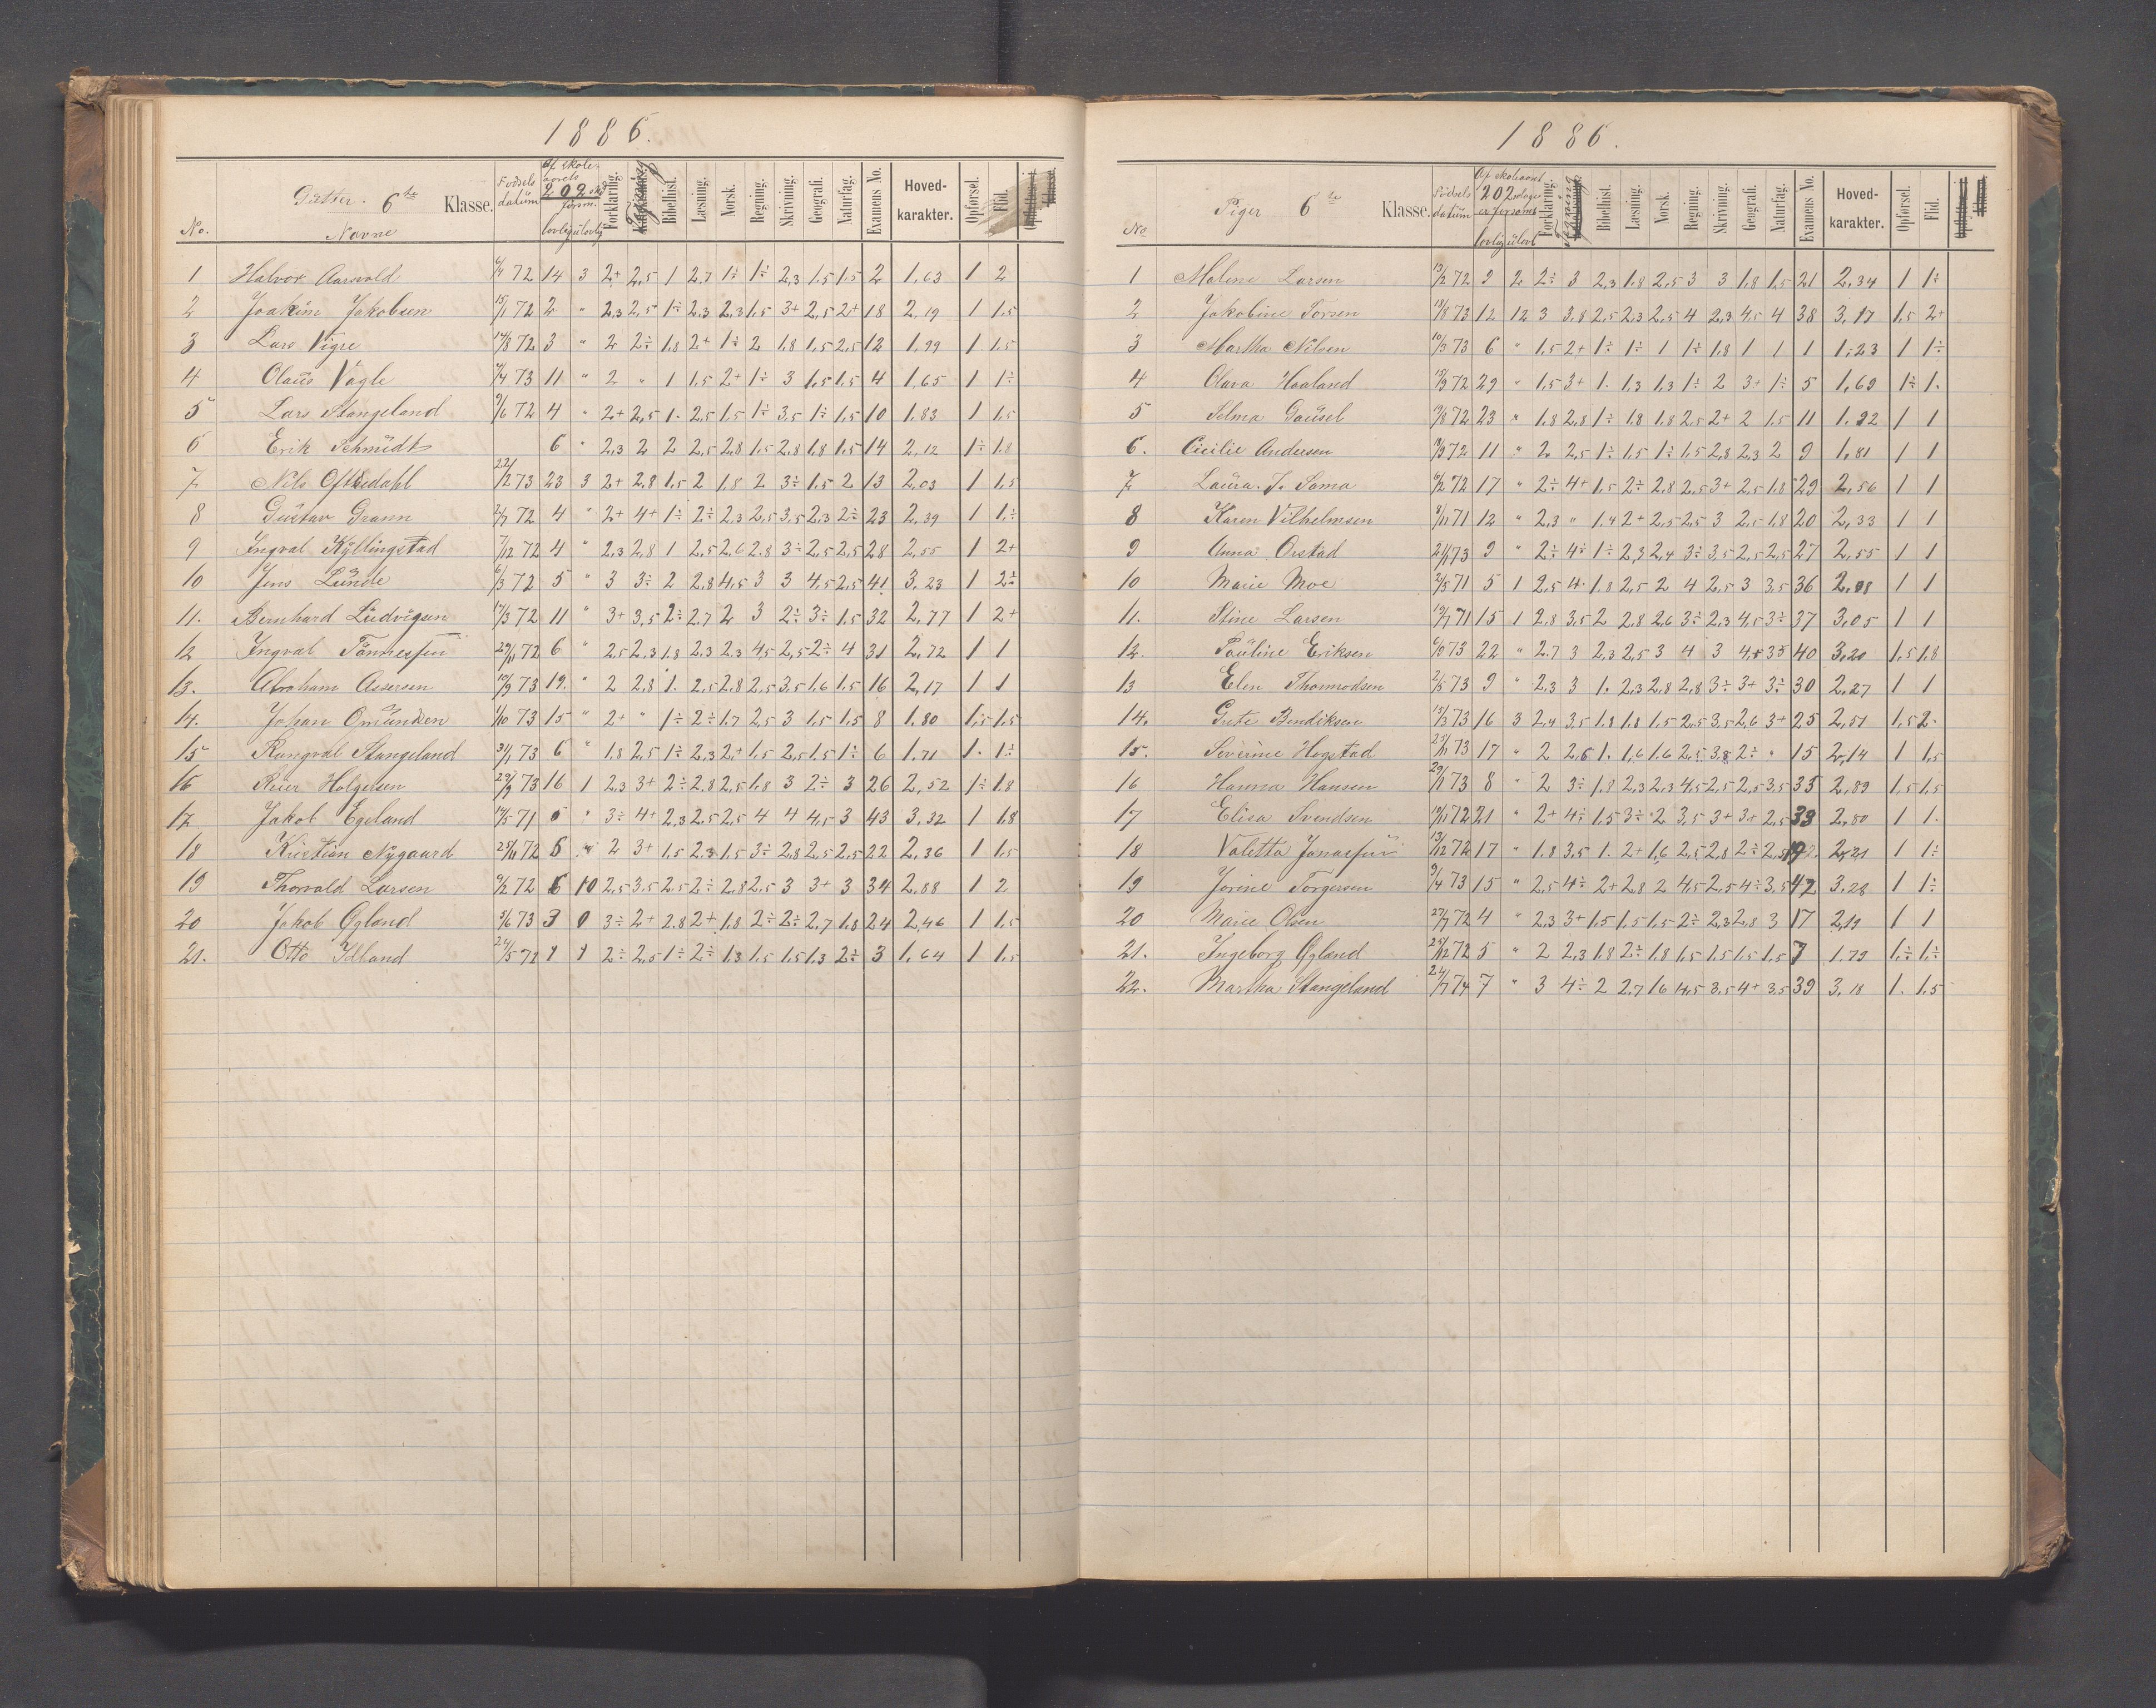 1886.
Gutter. 6te Klasse.
No. Navne Fødsels datum Af skole- aarets 202 dage forsømt lovlig ulovlig Forklaring. Tegning Bibelhist. Læsning. Norsk. Regning. Skrivning. Geografi. Naturfag. Examens No. Hoved-karakter. Opførsel. Flid.
1 Halvor Aarsvold 6/4 72 14 3 2+ 2,5 1 2,7 1÷ 1÷ 2,3 1,5 1,5 2 1,63 1 2
2 Joakim Jakobsen 15/1 72 2 " 2,3 2,5 1÷ 2,3 2,3 1,5 3+ 2,5 2+ 18 2,19 1 1,5
3 Lars Vigre 14/8 72 3 " 2 2÷ 1,8 2+ 1÷ 2 1,8 1,5 2,5 12 1,99 1 1,5
4 Olaus Vagle 7/4 73 11 " 2 " 1 1,5 2+ 1÷ 3 1,5 1,5 4 1,65 1 1÷
5 Lars Stangeland 9/6 72 4 " 2+ 2,5 1. 2,5 1,5 1÷ 3,5 1÷ 1,5 10 1,83 1 1,5
6 Erik Schmidt 6 " 2,3 2 2 2,5 2,8 1,5 2,8 1,8 1,5 14 2,12 1÷ 1,8
7 Nils Oftedahl 22/12 73 23 3 2+ 2,8 1,5 2 1,8 2 3÷ 1,5 2 13 2,03 1 1,5
8 Gustav Grann 2/7 72 4 " 2+ 4+ 1÷ 2÷ 2,3 2,5 3,5 2,3 2÷ 23 2,39 1 1÷
9 Ingval Kyllingstad 7/12 72 4 " 2,3 2,8 1 2,5 2,6 2,8 3÷ 2,5 2,5 28 2,55 1 2+
10 Jens Lunde 6/3 72 5 " 3 3÷ 2 2,8 4,5 3 3 4,5 2,5 41 3,23 1 2÷
11. Bernhard Ludvigsen 17/3 72 11 " 3+ 3,5 2÷ 2,7 2 3 2÷ 3÷ 1,5 32 2,77 1 2+
12 Ingval Tønnessen 29/11 72 6 " 2,5 2,3 1,8 2,3 2,3 4,5 2,5 2÷ 4 31 2,72 1 1
13. Abraham Assersen 10/9 73 19. " 2 2,8 1. 2,5 2,8 2,5 3,5 1,6 1,5 16 2,17 1 1
14. Johan Omundsen 1/10 73 15 " 2+ " 1÷ 2÷ 1,7 2,5 3 1,5 1,5 8 1,80 1,5 1,5
15 Rungval Stangeland 31/1 73 6 " 1,8 2,5 1÷ 2,3 2+ 1,5 2,5 1,5 1÷ 6 1,71 1. 1÷
16 Reier Holgersen 23/9 73 16 1 2,3 3+ 2÷ 2,8 2,5 1,8 3 2÷ 3 26 2,52 1÷ 1,8
17 Jakob Egeland 14/5 71 6 " 3÷ 4+ 2,3 2,5 2,5 4 4 4,5 3 43 3,32 1 1,8
18 Kristian Nygaard 25/11 72 6 " 2 3+ 1,5 2,3 1,5 3÷ 2,8 2,5 2,5 22 2,36 1 1,5
19 Thorvald Larsen 9/2 72 6 10 2,5 3,5 2,5 2÷ 2,8 2,5 3 3+ 3 34 2,88 1 2
20 Jakob Ogland 3/6 73 3 0 3÷ 2+ 2,8 2+ 1,8 2÷ 2÷ 2,7 1,8 24 2,46 1 1,5
21. Otto Idland 24/5 72 1 1 2÷ 2,5 1÷ 2÷ 1,3 1,5 1,5 1,3 2÷ 3 1,64 1 1,5
1886.
Piger 6te Klasse.
No Fødsels datum Af skoleaaret 202 dage er forsømt lovlig ulovl Forklaring. Tegning Bibelhist. Læsning. Norsk. Regning. Skrivning. Geografi. Naturfag. Examens No. Hoved-karakter. Opførsel. Flid.
1 Malene Larsen 13/2 72 9 2 2÷ 3 2,3 1,8 2,5 3 3 1,8 1,5 21 2,34 1 1÷
2 Jakobine Torsen 18/8 73 12 12 3 3,8 2,5 2,3 2,5 4 2,3 4,5 4 38 3,17 1,5 2+
3 Martha Nilsen 10/3 73 6 " 1,5 2+ 1÷ 1÷ 1 1÷ 1,8 1 1 1 1,23 1 1÷
4 Olava Haaland 18/9 72 29 " 1,5 3+ 1. 1,3 1,3 1÷ 2 3+ 1÷ 5 1,69 1÷ 1.
5 Selma Gausel 19/8 72 23 " 1,8 2,8 1÷ 1,8 1,8 2,5 2+ 2 1,5 11 1,92 1 1
6. Cicilie Andersen 18/3 72 11 " 2 2,5 1÷ 1,5 1÷ 1,5 2,8 2,3 2 9 1,81 1 1
7 Laura. J. Soma 6/2 72 17 " 2÷ 4+ 1,5 2÷ 2,8 2,5 3+ 2,5 1,8 29 2,56 1 1
8 Karen Vilhelmsen 8/11 71 12 " 2,3 " 1,4 2+ 2,5 2,5 3 2,5 1,8 20 2,33 1 1
9 Anna Orstad 21/1 73 9 " 2÷ 4÷ 1÷ 2,3 2,4 3÷ 3,5 2,5 2,5 27 2,55 1 1
10 Marie Moe 2/5 71 5 1 2,5 4 1,8 2,5 2 4 2,5 3 3,5 36 2,98 1 1
11. Stine Larsen 19/7 71 15 1 2,8 3,5 2 2,8 2,6 3÷ 2,3 4,5 3÷ 37 3,05 1 1
12. Pauline Eriksen 6/10 73 22 " 2,7 3 2,3 2,5 3 4 3 4,5 3,5 40 3,20 1,5 1,8
13 Elen Thomrodsen 2/5 73 9 " 2,3 3 1. 2,3 2,8 2,8 3÷ 3+ 3÷ 30 2,27 1 1
14. Grete Bendiksen 13/3 73 16 3 2,4 3,5 1,8 1,8 1,5 2,5 3,5 2,6 3+ 25 2,51 1,5 2
15. Severine Hogstad 23/11 73 17 " 2 2,6 1. 1,6 1,6 2,5 3,8 2÷ " 15 2,14 1 1,5
16 Hanna Hansen 29/1 73 8 " 2 3÷ 1,8 2,3 2,3 4,5 2,5 2,5 3,5 35 2,89 1,5 1,5
17 Elisa Svendsen 10/11 72 21 " 2+ 4÷ 1,5 3÷ 2 3,5 3+ 3+ 2,5 33 2,80 1 1.
18 Valetta Jonassen 13/12 72 17 " 1,8 3,5 1. 2+ 1,6 2,5 2,8 2÷ 2,5 19 2,21 1 1÷
19 Jorine Torgersen 9/4 73 15 " 2,5 4÷ 2+ 2,8 2 4,5 2,5 4÷ 3,5 42 3,28 1 1÷
20 Marie Olsen 27/7 72 4 " 2,3 3+ 1,5 1,5 1,5 2÷ 2,3 2,8 3 17 2,19 1 1
21. Ingeborg Ogland 25/12 72 5 " 2 2,3 1,8 2÷ 1,8 1,5 1,5 1,5 1,5 7 1,79 1÷ 1÷
22. Martha Stangeland 24/7 74 7 " 3 4÷ 2 2,7 1,6 4,5 3,5 4+ 3,5 39 3,18 1. 1,5